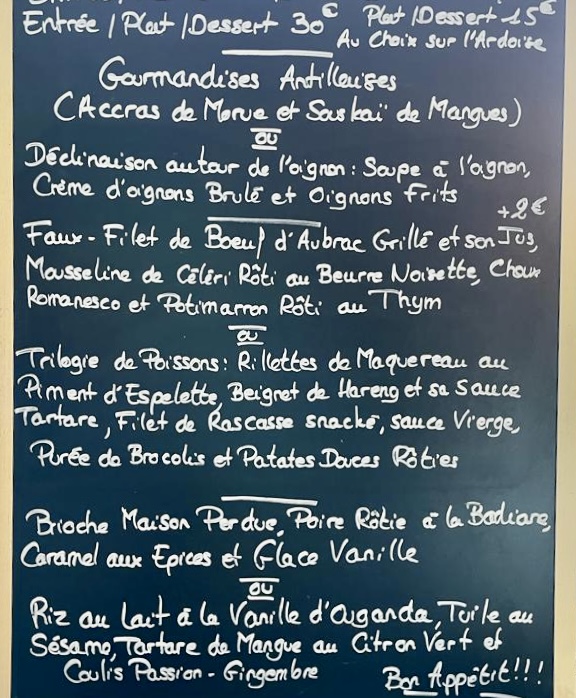 Entrée / Plat / Dessert 30€ Plat / Dessert 25€
Au Choix sur l'Ardoise
Gourmandises Antillaises
(Accras de Morue et Souskaï de Mangues)
ou
Déclinaison autour de l'oignon : Soupe à l'oignon,
Crème d'oignons Brulé et Oignons Frits
+2€
Faux-Filet de Boeuf d'Aubrac Grillé et son Jus,
Mousseline de Céléri Rôti au Beurre Noisette, Choux
Romanesco et Potimarron Rôti au Thym
ou
Trilogie de Poissons : Rillettes de Maquereau au
Piment d'Espelette, Beignet de Hareng et sa Sauce
Tartare, Filet de Rascasse snacké, sauce Vierge,
Purée de Brocolis et Patates Douces Rôties
Brioche Maison Perdue, Poire Rôtie à la Badiane,
Caramel aux Epices et Glace Vanille
ou
Riz au Lait à la Vanille d'Ouganda, Tuile au
Sésame, Tartare de Mangue au Citron Vert et
Coulis Passion - Gingembre Bon Appétit!!!